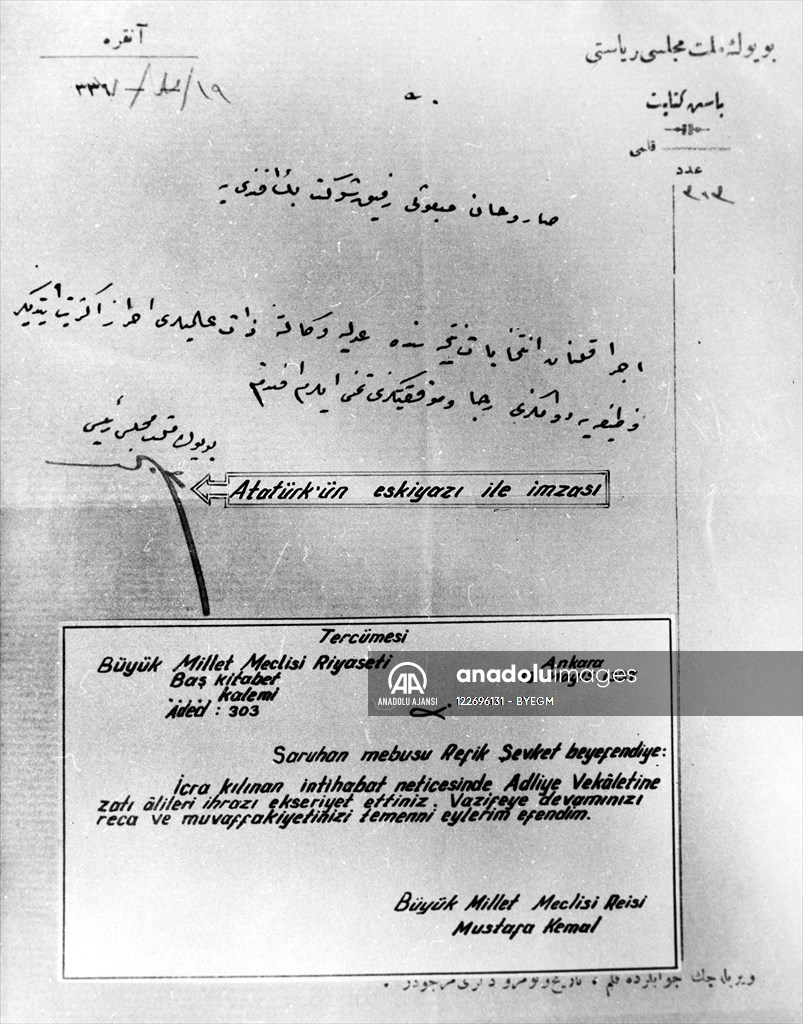 آنقره
بويوك ملت مجلسى رياستى
١٩/ /٣٣٦
باش كتابت
قلمى
عدد
٣٠٣
صاروخان مبعوثى رفيق شوكت بك افندى يه
اجرا قلنان انتخابات نتيجه سنده عدليه وكالتنه ذات عاليلرى احراز اكثريت ايتديكز
وظيفه يه دوامكزى رجا وموفقيتكزى تمنى ايلرم افندم
بويوك ملت مجلسى رئيسى
Atatürk'ün eskiyazı ile imzası
Tercümesi
Büyük Millet Meclisi Riyaseti
Ankara
Baş kitabet
kalemi
Aded : 303
AA
ANADOLU AJANSI
anadoluimages
122696131 - BYEGM
Saruhan mebusu Refik Şevket beyefendiye:
İcra kılınan intihabat neticesinde Adliye Vekâletine
zatı âlileri ihrazı ekseriyet ettiniz. Vazifeye devamınızı
reca ve muvaffakiyetinizi temenni eylerim efendim.
Büyük Millet Meclisi Reisi
Mustafa Kemal
ويريله جك جوابلرده قلم ، تاريخ ونومرو ذكرى مرجودر .